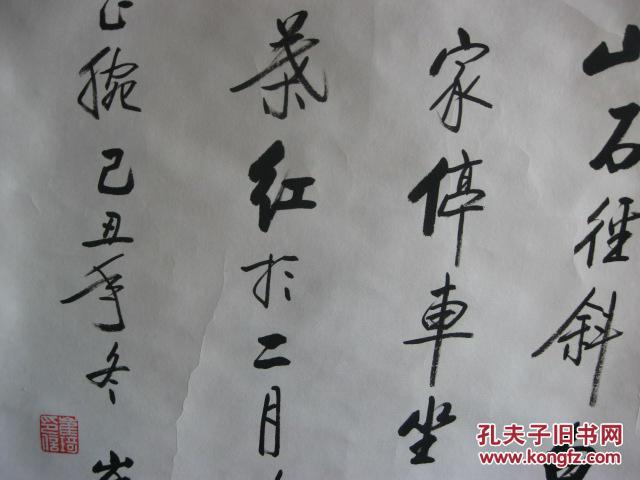 山石径斜白
家停車坐
葉紅於二月
腕己丑年冬
孔夫子旧书网
www.kongfz.com